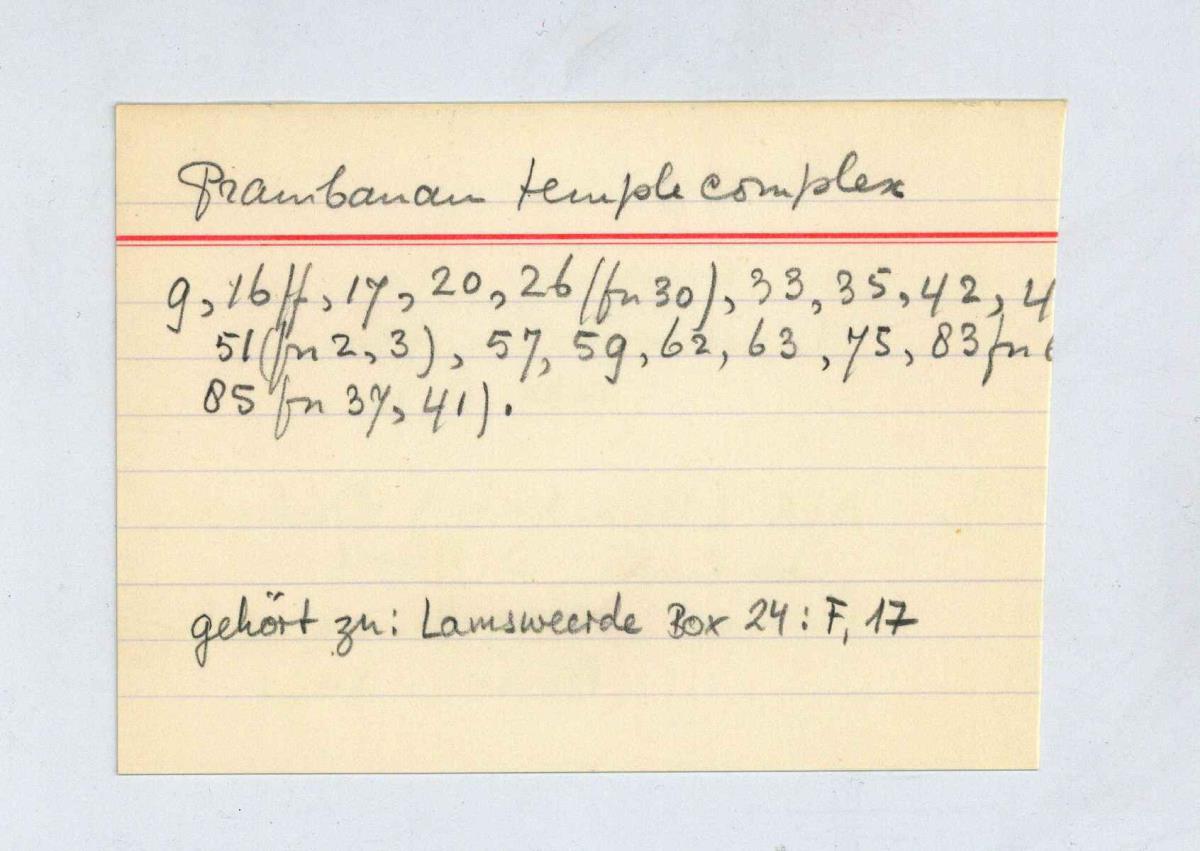 Prambanan temple complex
9, 16ff, 17, 20, 26 (fn 30), 33, 35, 42, 4
51 (fn 2, 3), 57, 59, 62, 63, 75, 83 fn
85 fn 37, 41).
gehört zu: Lamsweerde Box 24: F, 17